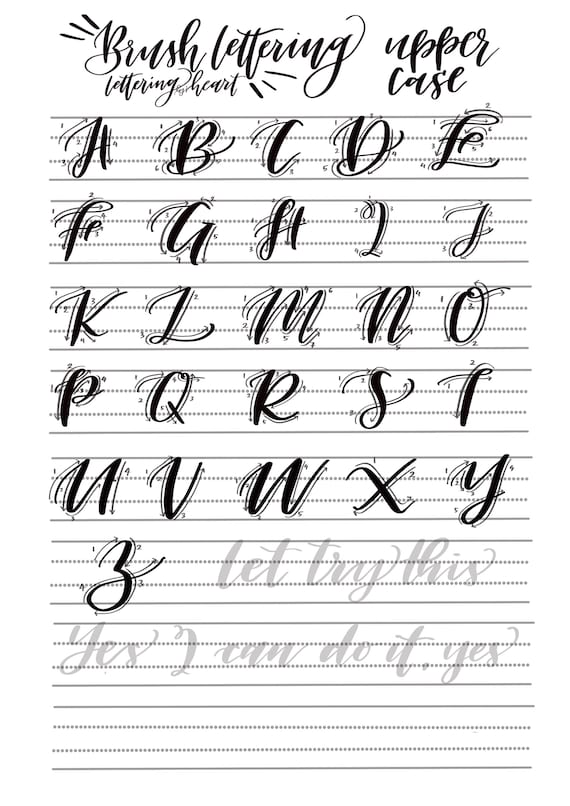 Brush lettering upper
lettering heart case
A B C D E
F G H I J
K L M N O
P Q R S T
U V W X Y
Z let try this
Yes I can do it, yes